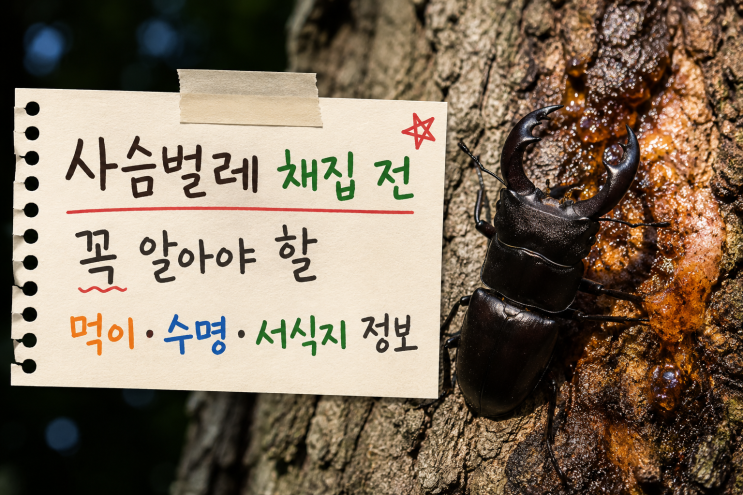 사슴벌레 채집 전
꼭 알아야 할
먹이·수명·서식지 정보